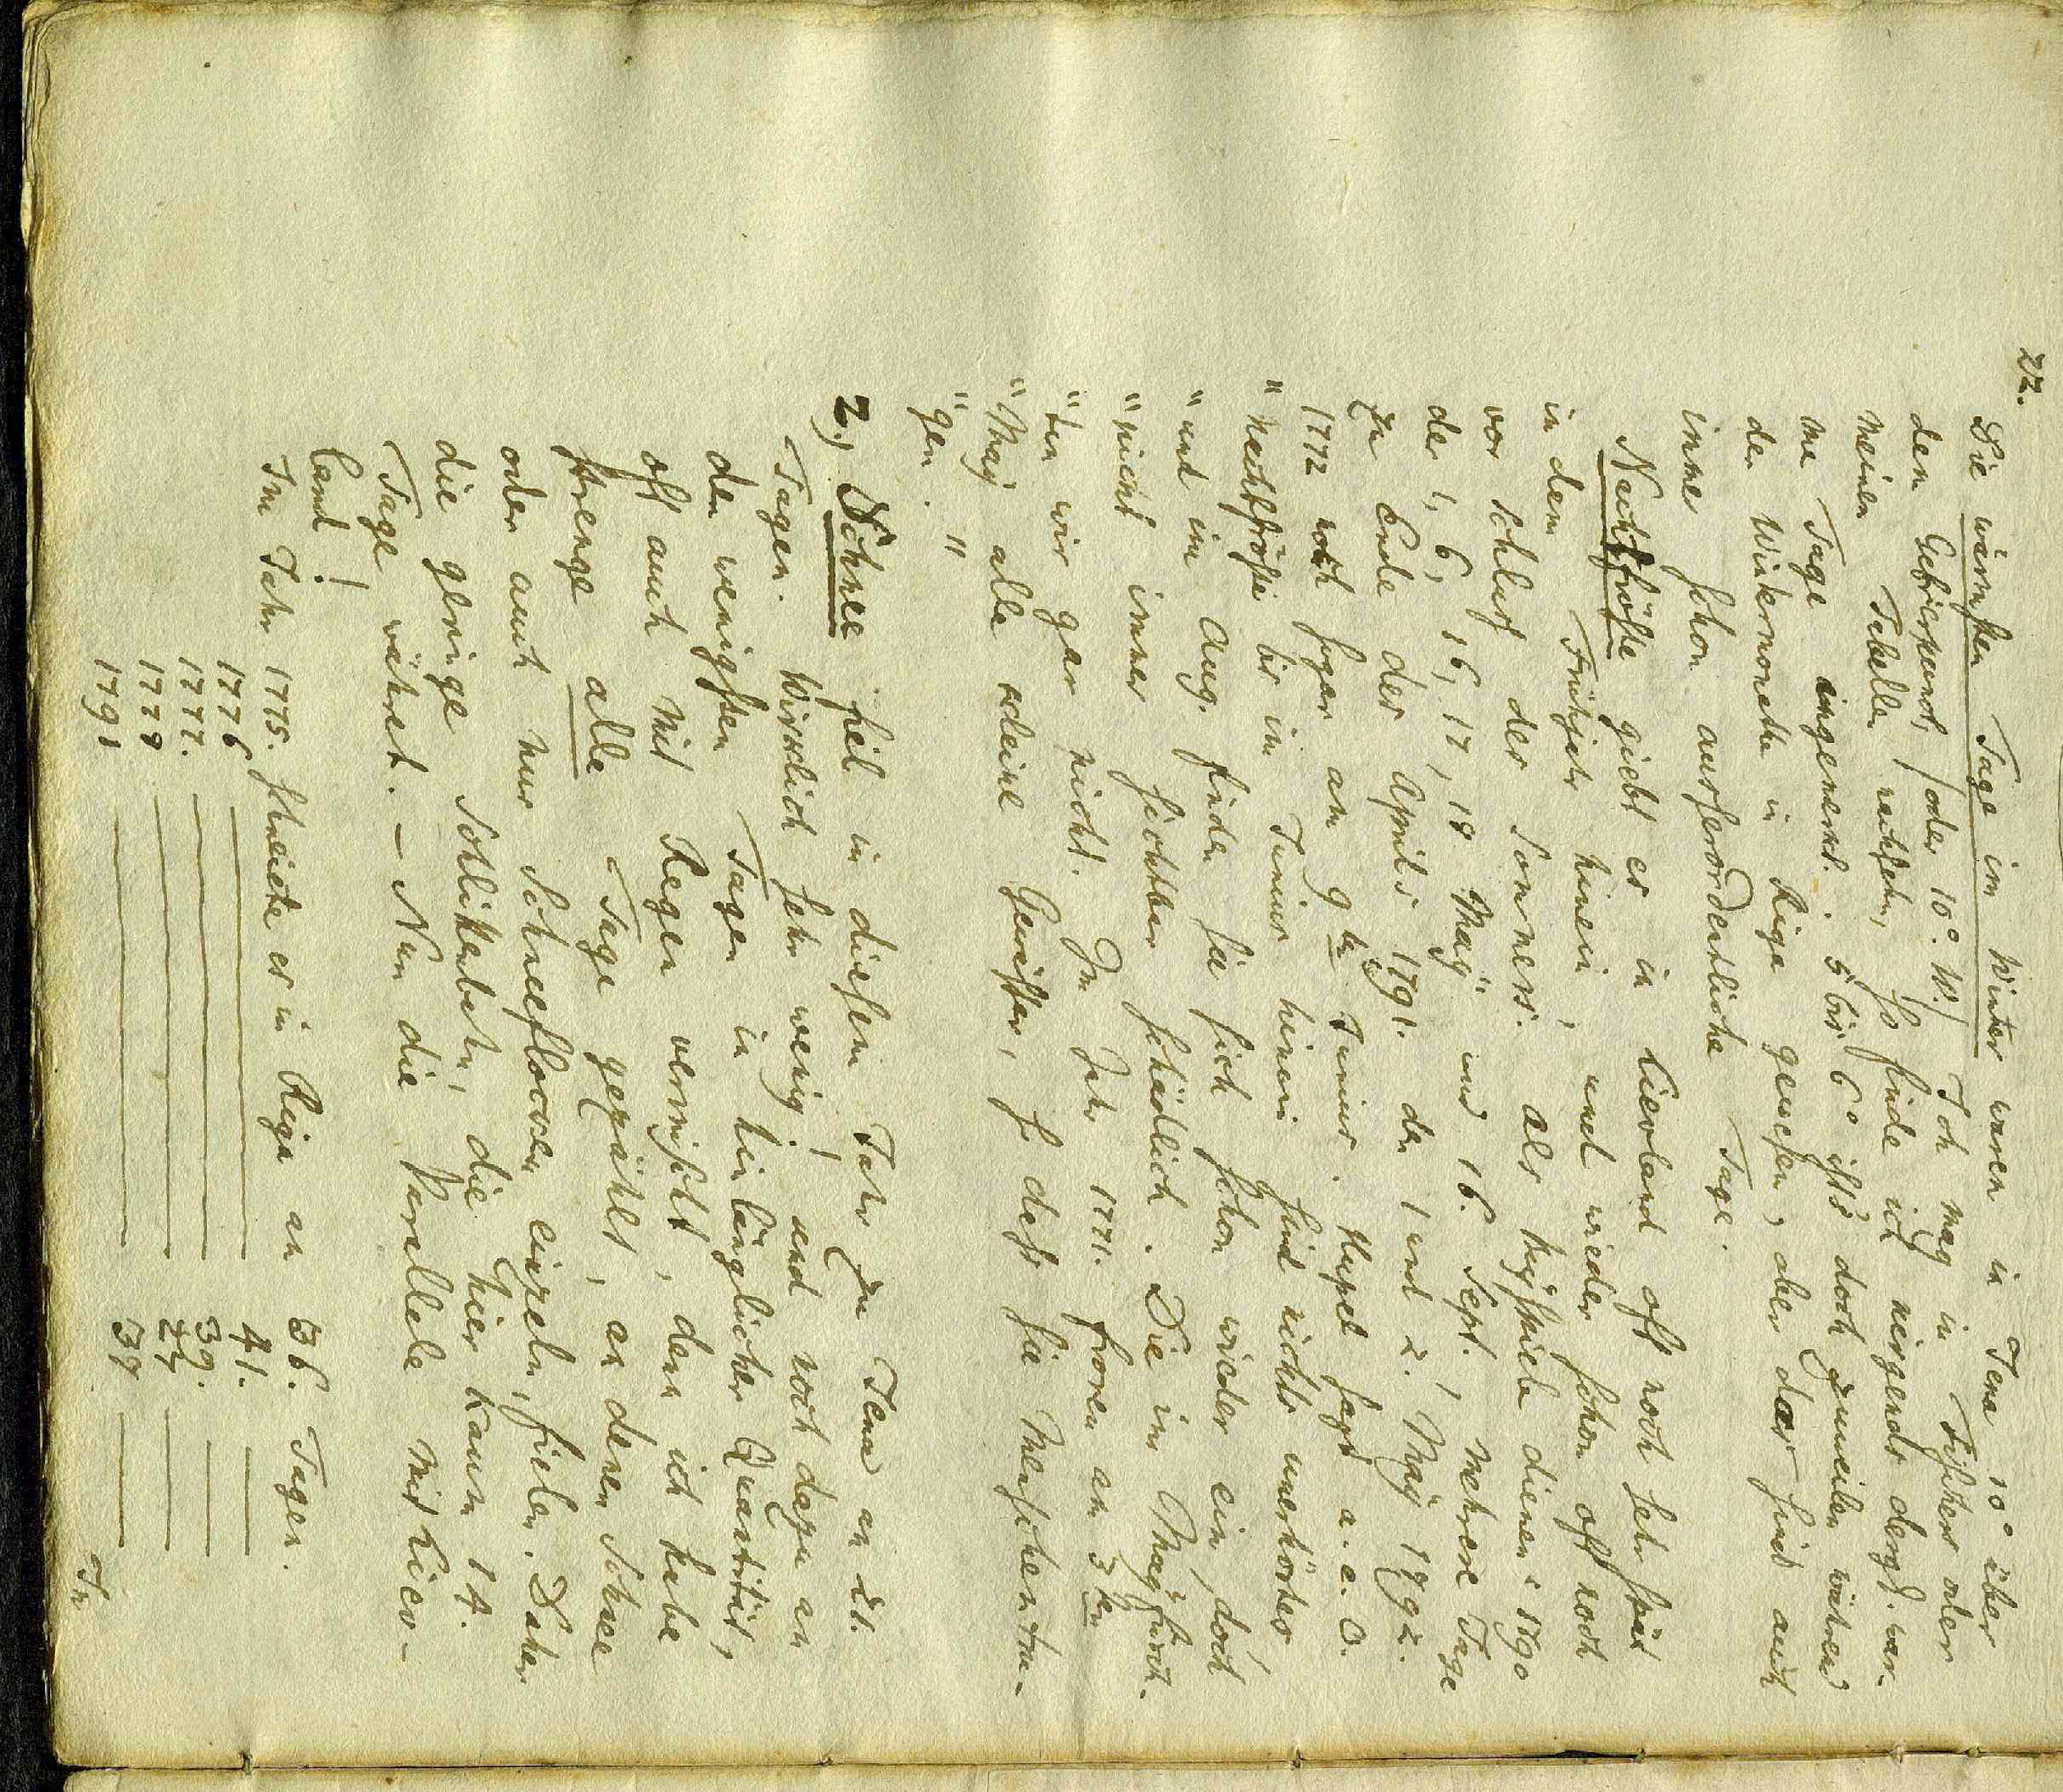 22.
Die wärmsten Tage im Winter waren in Jena 10° über
den Gefrierpunct /oder 10°. W./ Ich mag in Fischers oder
meinen Tabellen nachsehn, so finde ich nirgends dergl. war-
me Tage angemerkt. 5 bis 6° ists doch zuweilen während
der Wintermonathe in Riga gewesen, aber das sind auch
immer schon ausserordentliche Tage.
Nachtfröste giebt es in Lievland oft noch sehr spät
in dem Frühjahr hinein, und wieder schon oft noch
vor Schluss des Sommers. Als Beyspiele dienen: 1790
der 1, 6, 16, 17, 18 May und 16. Sept., mehrere Tage
zu Ende des Aprils 1791. den 1 und 2. May 1792.
1772 noch sogar am 9ten Junius. Hupel sagt a. a. O.
"Nachtfröste bis im Junius hinein sind nichts unerhörtes
"und im Aug. finden sie sich schon wieder ein, doch
"nicht immer sichtbar schädlich. Die im May fürch-
"ten wir gar nicht. Im Jahr 1771. froren am 3ten
"May alle kleine Gewässer, so dass sie Menschen tru-
"gen."
2.) Schnee fiel in diesem Jahr zu Jena an 21.
Tagen. Wirklich sehr wenig, und noch dazu an
den wenigsten Tagen in hinlänglicher Quantität,
oft auch mit Regen vermischt, denn ich habe
strenge alle Tage gezählt, an denen Schnee
oder auch nur Schneeflocken einzeln, fielen. Daher
die geringe Schlittenbahn, die hier kaum 14.
Tage währet. – Nun die Parallele mit Liev-
land!
Im Jahr 1775. schneiete es in Riga an 36. Tagen.
1776 — 41. —
1777. — 39. —
1778 — 27 —
1791 — 37 —
In